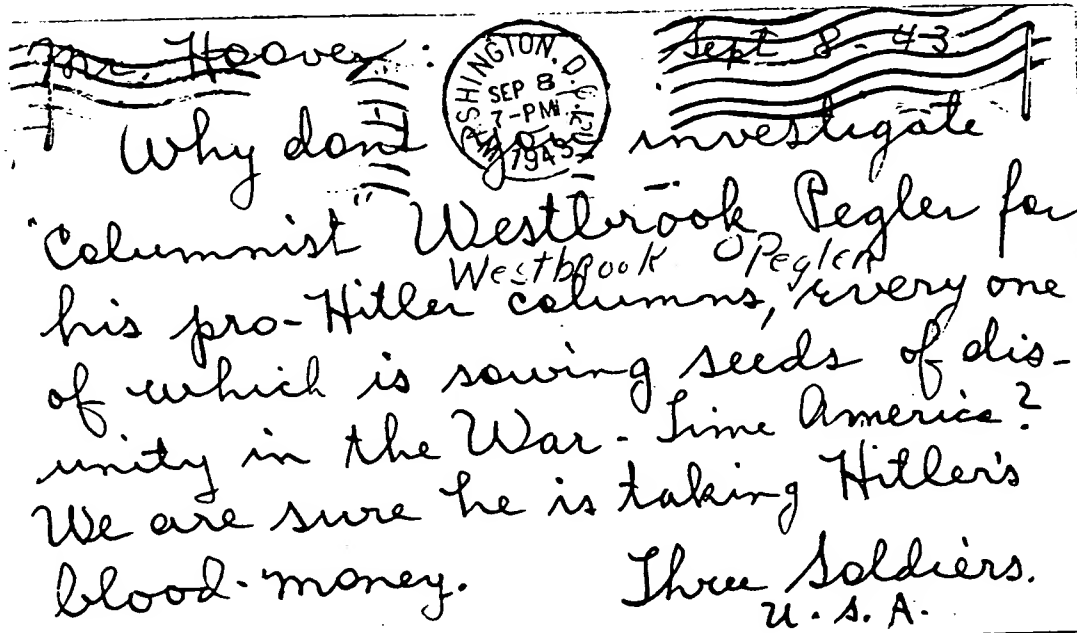 Mr. Hoover: Sept 8-43
WASHINGTON, D.C.
SEP 8
7-PM
1943
Why don't you investigate
"Columnist" Westbrook Pegler for
Westbrook Pegler
his pro-Hitler columns, every one
of which is sowing seeds of dis-
unity in the War-Time America?
We are sure he is taking Hitler's
blood-money. Three Soldiers.
U.S.A.